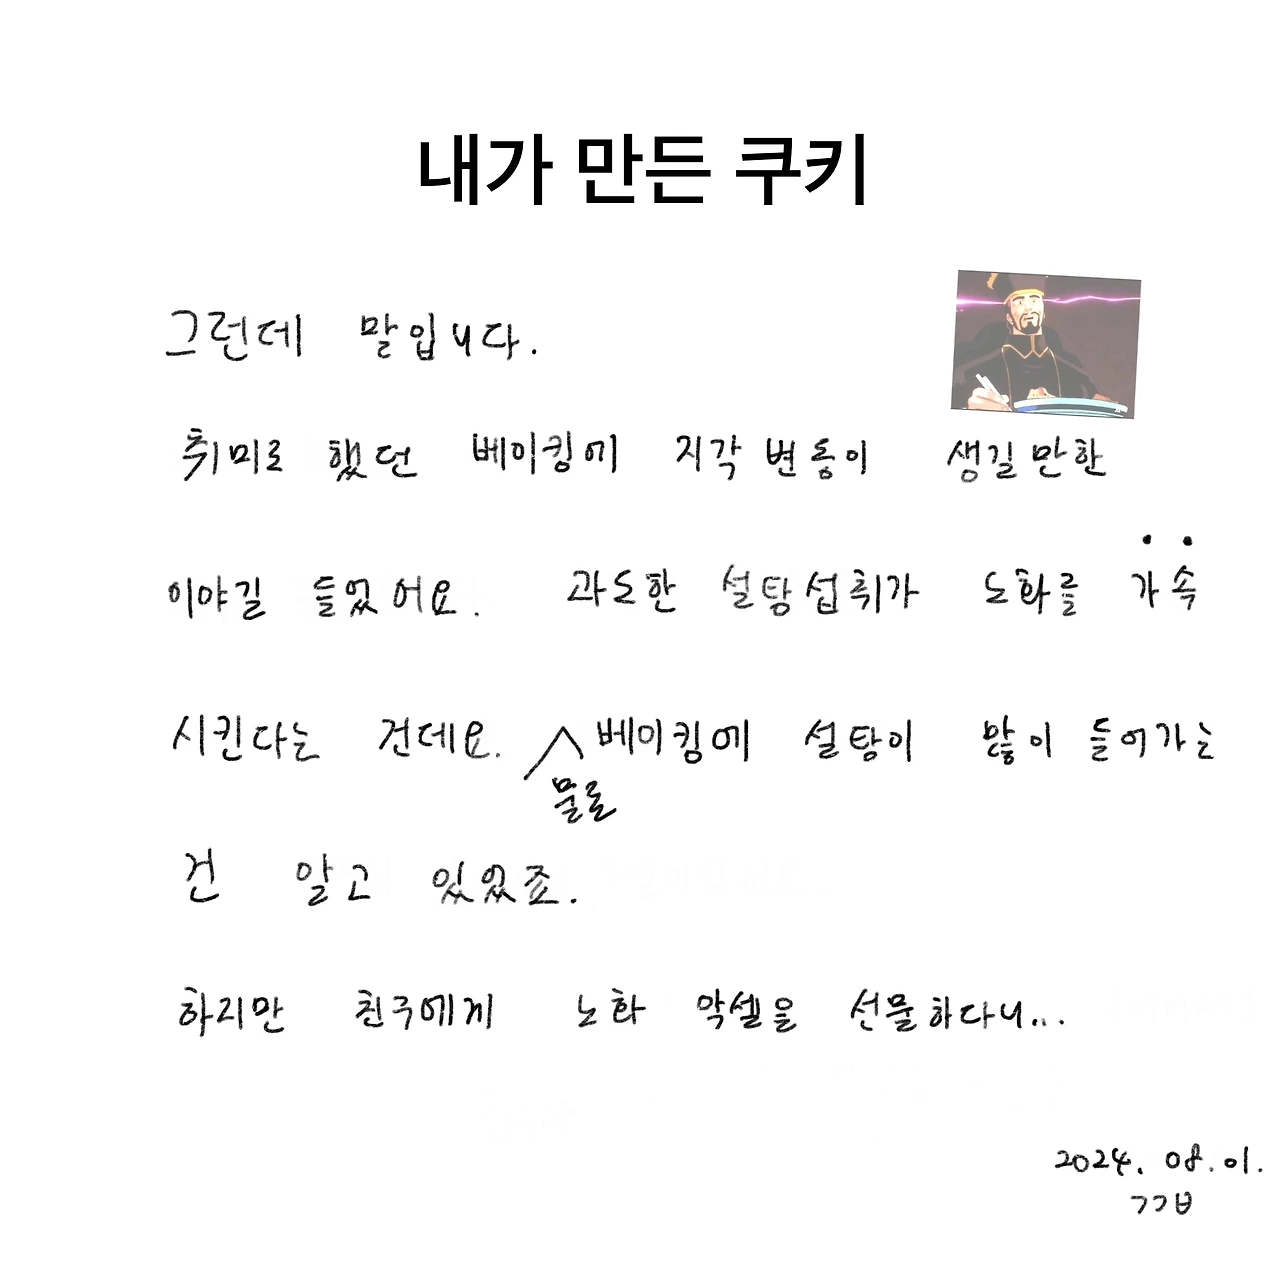 내가 만든 쿠키
그런데 말입니다.
취미로 했던 베이킹에 지각 변동이 생길만한
이야길 들었어요. 과도한 설탕섭취가 노화를 가속
시킨다는 건데요. 베이킹에 설탕이 많이 들어가는
물론
건 알고 있었죠.
하지만 친구에게 노화 악셀을 선물하다니...
2024. 08. 01.
ㄱㄱㅂ